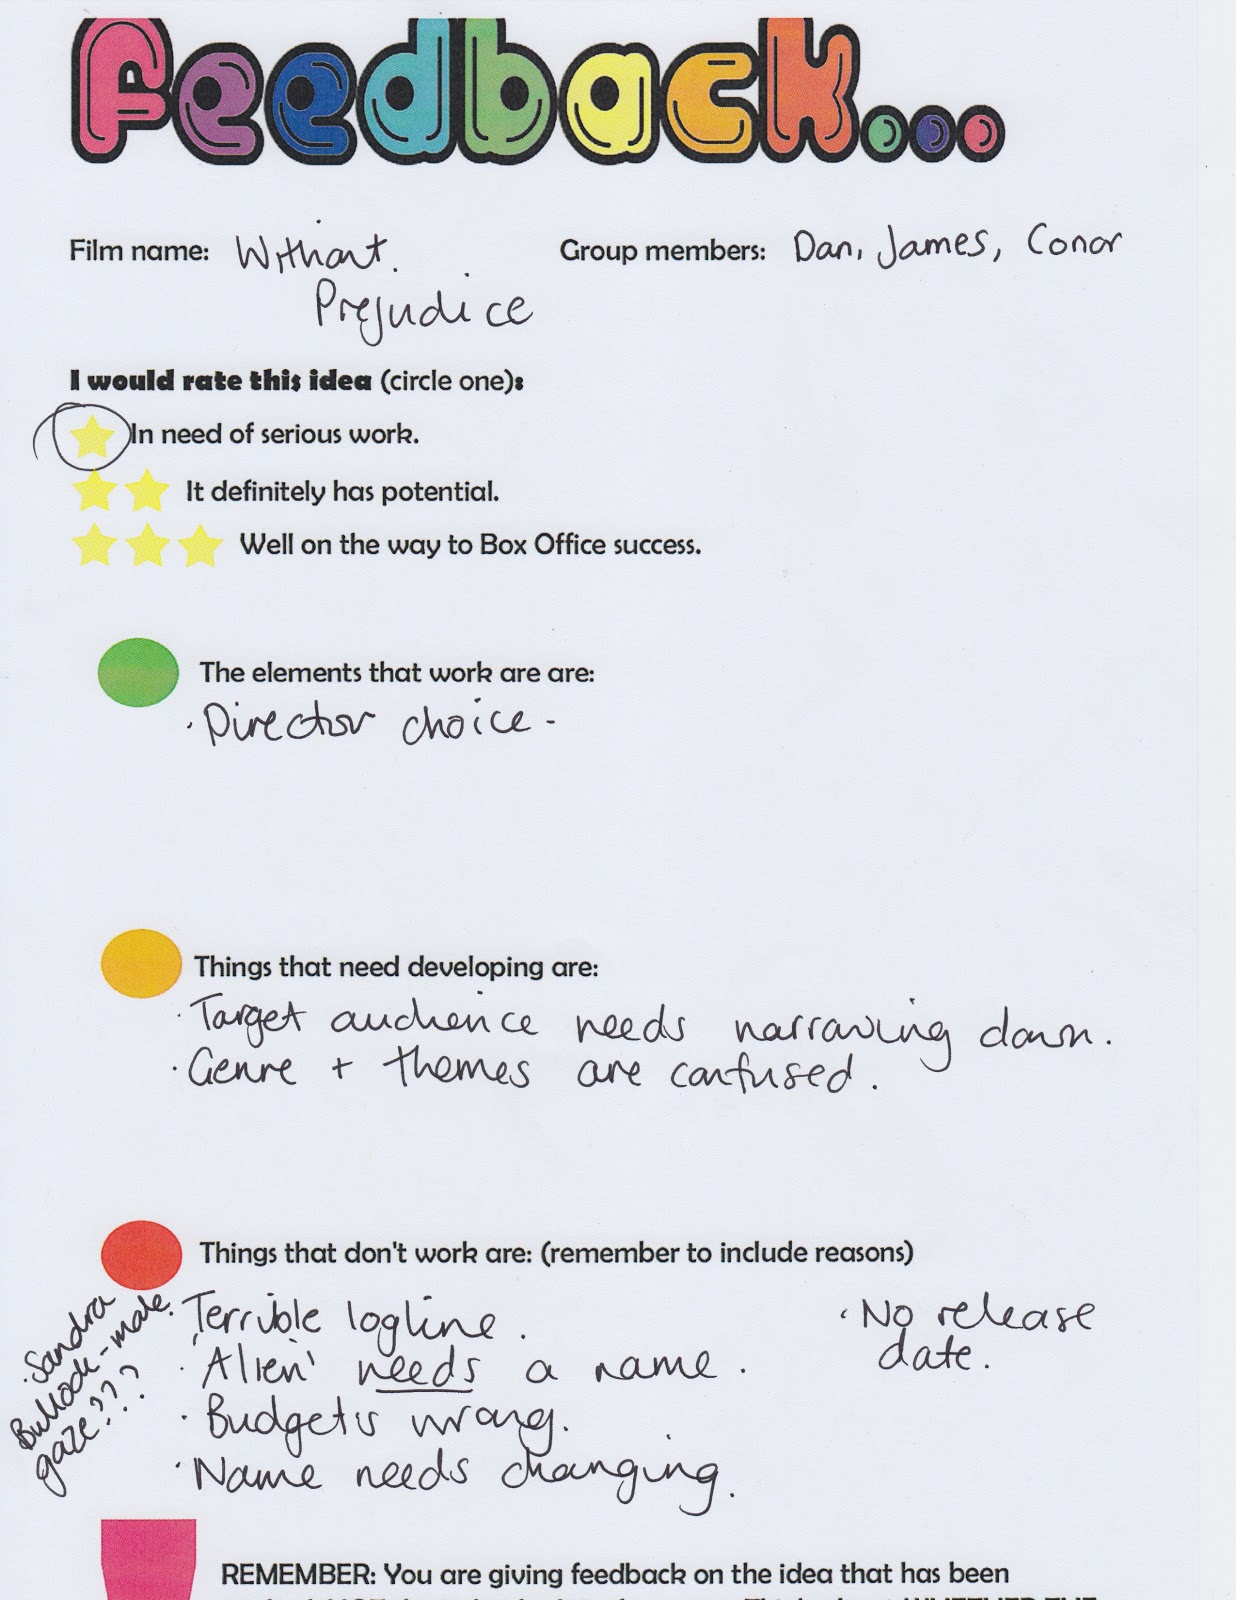 Feedback...
Film name: Without Group members: Dan, James, Conor
Prejudice
I would rate this idea (circle one):
In need of serious work.
It definitely has potential.
Well on the way to Box Office success.
The elements that work are are:
· Director choice -
Things that need developing are:
· Target audience needs narrowing down.
· Genre + themes are confused.
Things that don't work are: (remember to include reasons)
· Terrible logline.
· 'Alien' needs a name.
· Budget is wrong.
· Name needs changing.
· No release
date.
· Sandra
Bullock - male
gaze???
REMEMBER: You are giving feedback on the idea that has been